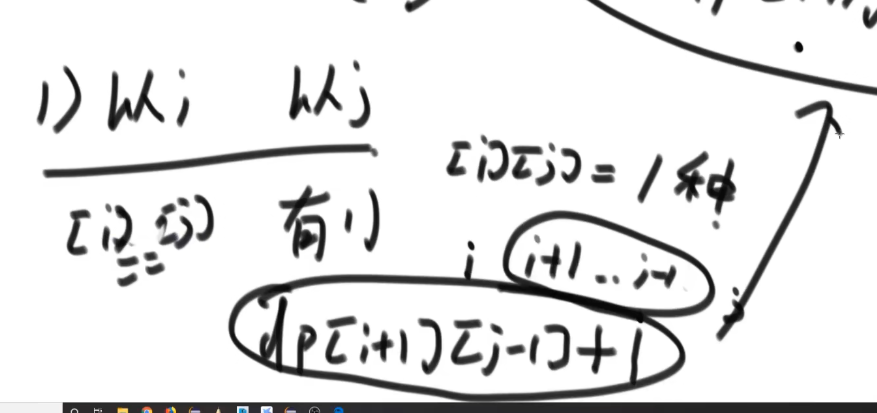 1) 以i 以j
[i][j]=1种
[i]==[j] 有1)
i i+1..j-1 j
dp[i+1][j-1]+1